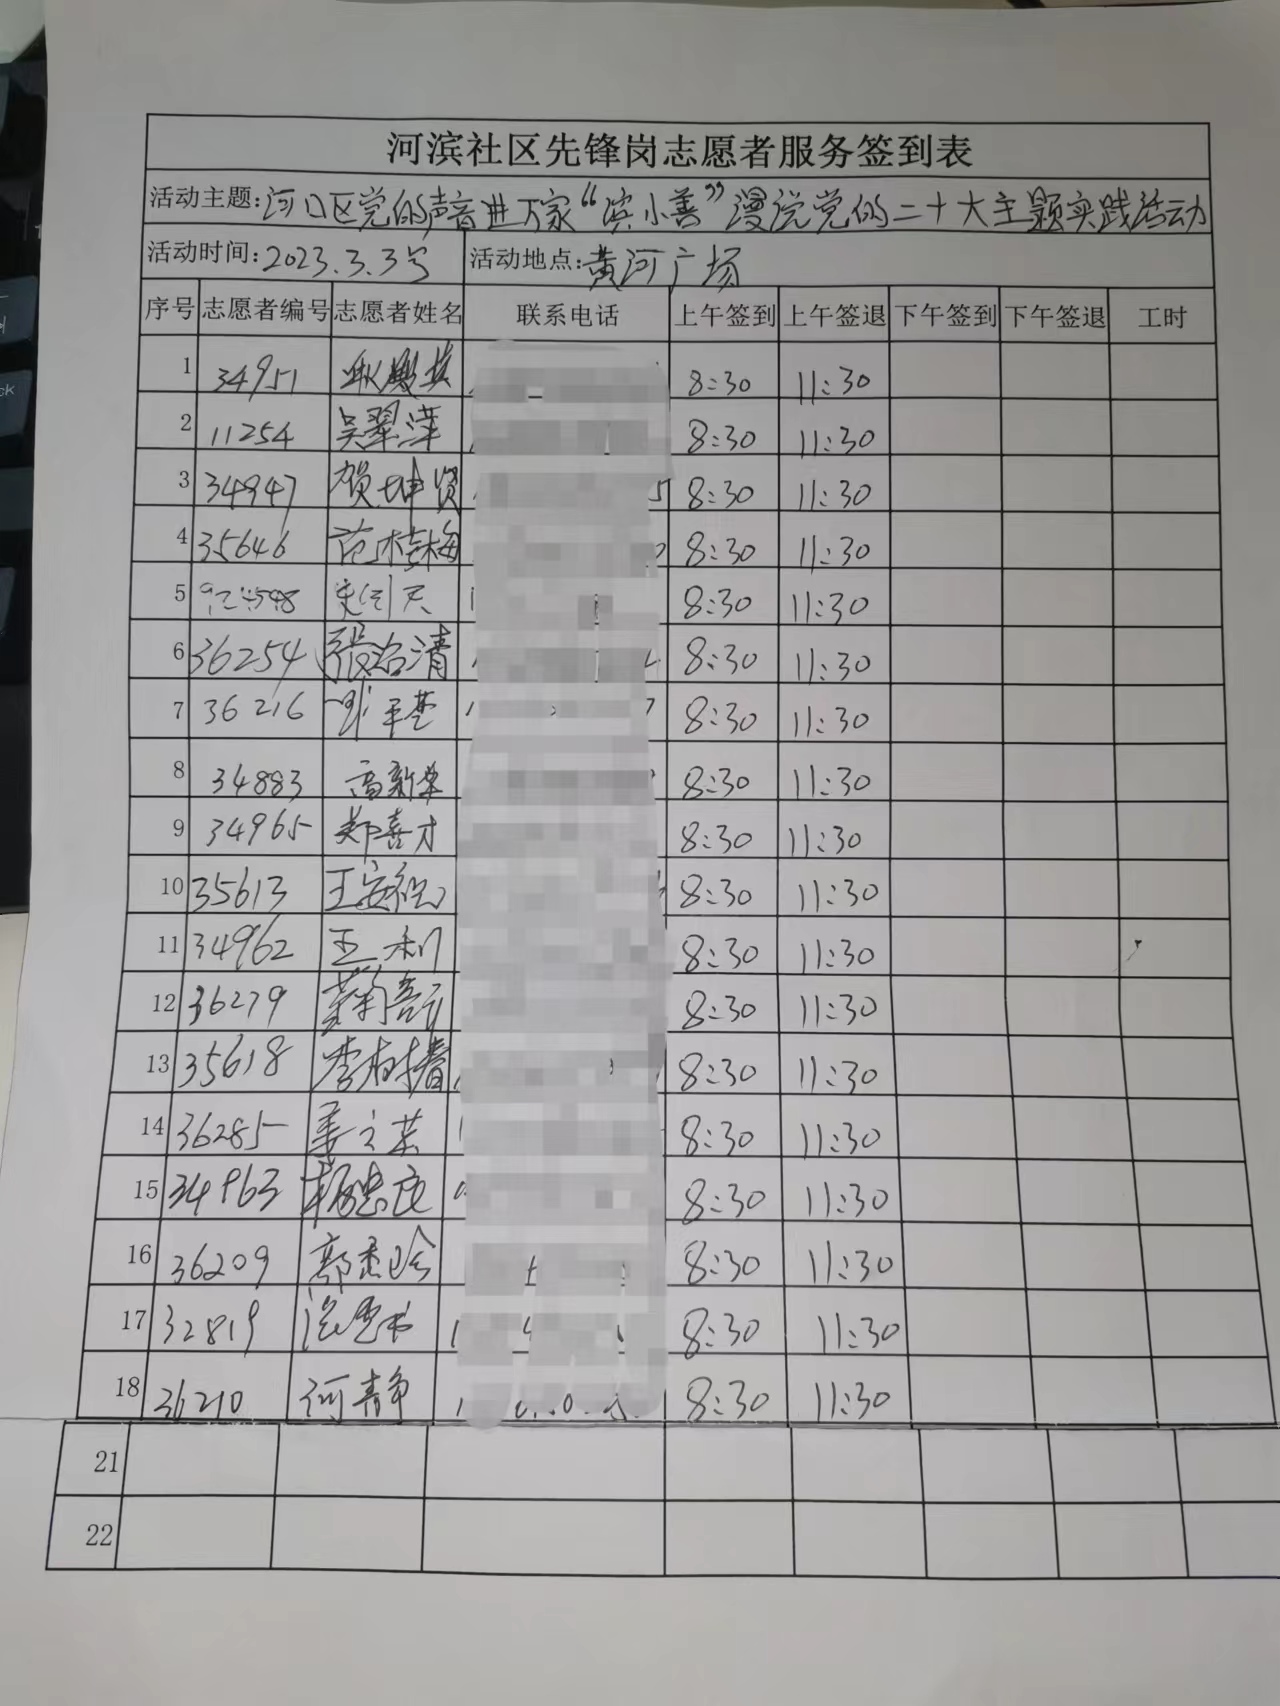 河滨社区先锋岗志愿者服务签到表
活动主题:河口区党的声音进万家“滨小善”漫说党的二十大主题实践活动
活动时间:2023.3.3号 活动地点:黄河广场
序号 志愿者编号 志愿者姓名 联系电话 上午签到 上午签退 下午签到 下午签退 工时
1 34951 8:30 11:30
2 11254 吴翠萍 8:30 11:30
3 34947 贺坤贤 8:30 11:30
4 35646 范桂梅 8:30 11:30
5 8:30 11:30
6 36254 張治清 8:30 11:30
7 36216 8:30 11:30
8 34883 高新华 8:30 11:30
9 34965 郑喜才 8:30 11:30
10 35613 8:30 11:30
11 34962 王利 8:30 11:30
12 36279 8:30 11:30
13 35618 李树春 8:30 11:30
14 36285 姜文英 8:30 11:30
15 34963 8:30 11:30
16 36209 8:30 11:30
17 32819 8:30 11:30
18 36210 何静 8:30 11:30
21
22